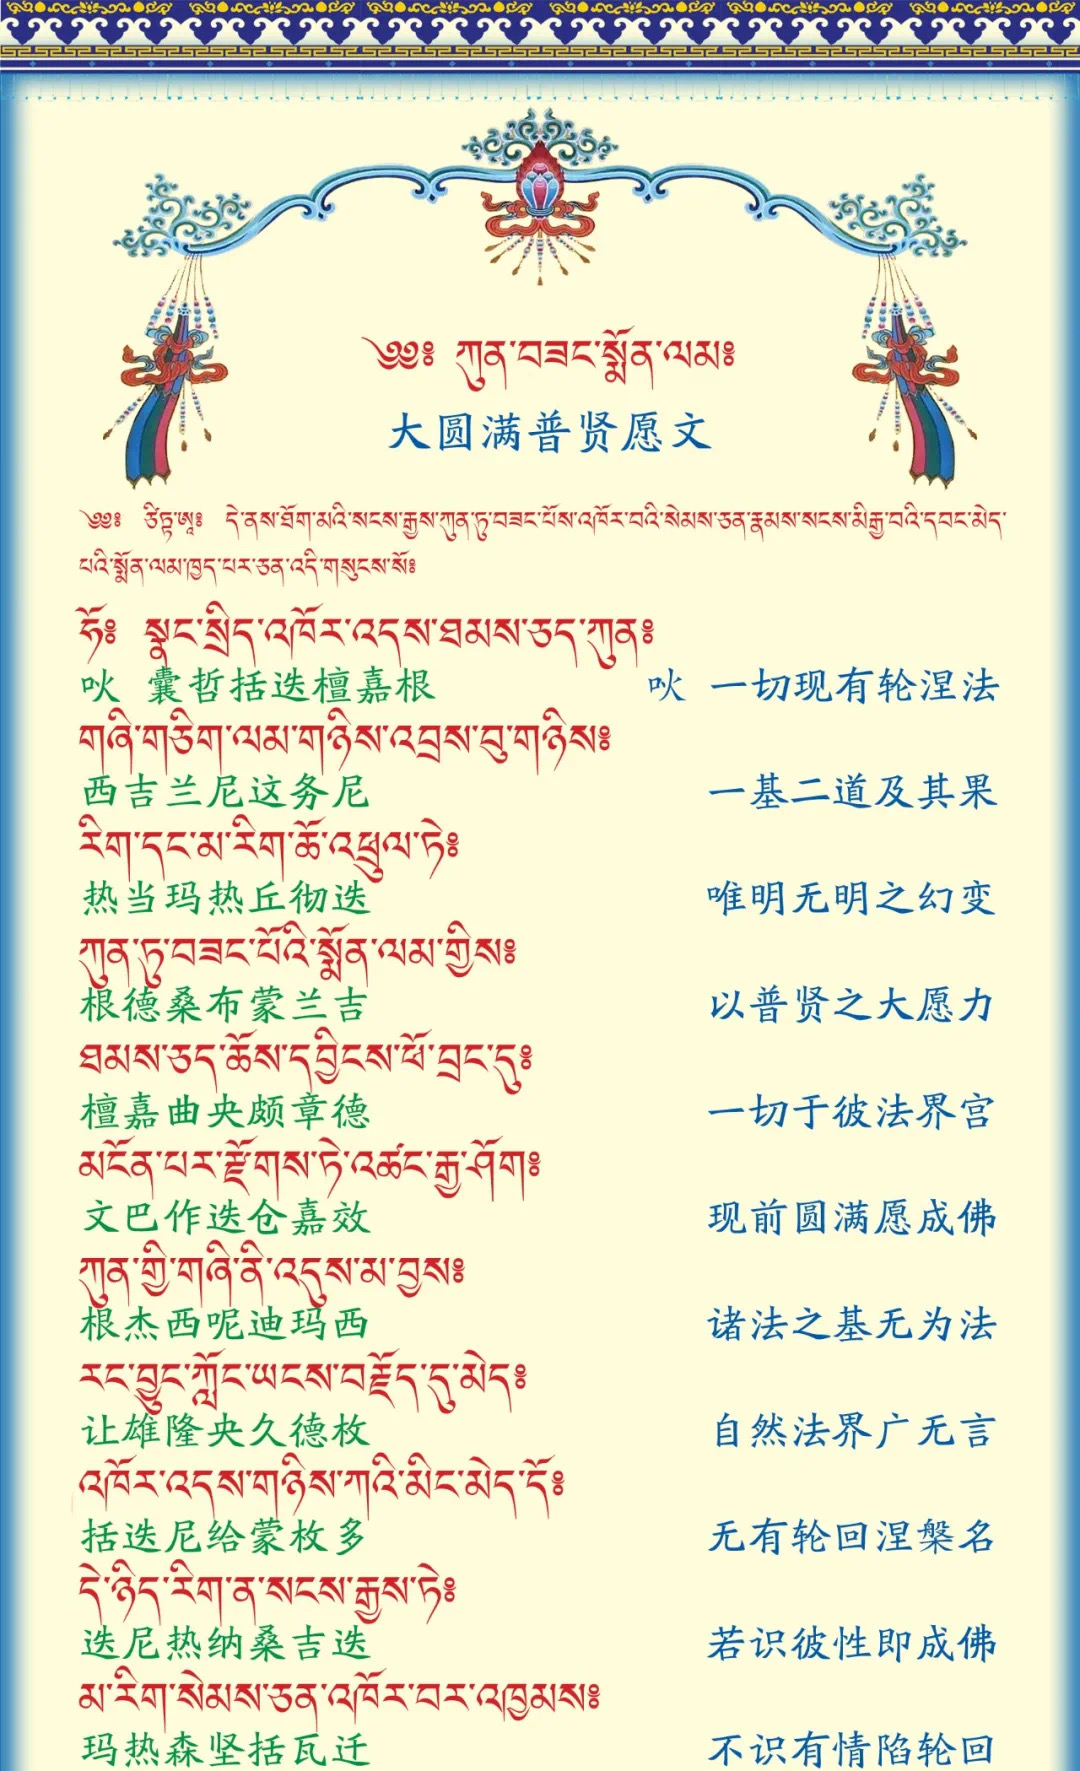 ༄༅༔ ཀུན་བཟང་སྨོན་ལམ༔
大圆满普贤愿文
༄༅༔ ཙིཏྟ་ཨཱ༔ དེ་ནས་ཐོག་མའི་སངས་རྒྱས་ཀུན་ཏུ་བཟང་པོས་འཁོར་བའི་སེམས་ཅན་རྣམས་སངས་མི་རྒྱ་བའི་དབང་མེད་
པའི་སྨོན་ལམ་ཁྱད་པར་ཅན་འདི་གསུངས་སོ༔
ཧོ༔ སྣང་སྲིད་འཁོར་འདས་ཐམས་ཅད་ཀུན༔
吙 囊哲括迭檀嘉根 吙 一切现有轮涅法
གཞི་གཅིག་ལམ་གཉིས་འབྲས་བུ་གཉིས༔
西吉兰尼这务尼 一基二道及其果
རིག་དང་མ་རིག་ཆོ་འཕྲུལ་ཏེ༔
热当玛热丘彻迭 唯明无明之幻变
ཀུན་ཏུ་བཟང་པོའི་སྨོན་ལམ་གྱིས༔
根德桑布蒙兰吉 以普贤之大愿力
ཐམས་ཅད་ཆོས་དབྱིངས་ཕོ་བྲང་དུ༔
檀嘉曲央颇章德 一切于彼法界宫
མངོན་པར་རྫོགས་ཏེ་འཚང་རྒྱ་ཤོག༔
文巴作迭仓嘉效 现前圆满愿成佛
ཀུན་གྱི་གཞི་ནི་འདུས་མ་བྱས༔
根杰西呢迪玛西 诸法之基无为法
རང་བྱུང་ཀློང་ཡངས་བརྗོད་དུ་མེད༔
让雄隆央久德枚 自然法界广无言
འཁོར་འདས་གཉིས་ཀའི་མིང་མེད་དོ༔
括迭尼给蒙枚多 无有轮回涅槃名
དེ་ཉིད་རིག་ན་སངས་རྒྱས་ཏེ༔
迭尼热纳桑吉迭 若识彼性即成佛
མ་རིག་སེམས་ཅན་འཁོར་བར་འཁྱམས༔
玛热森坚括瓦迁 不识有情陷轮回